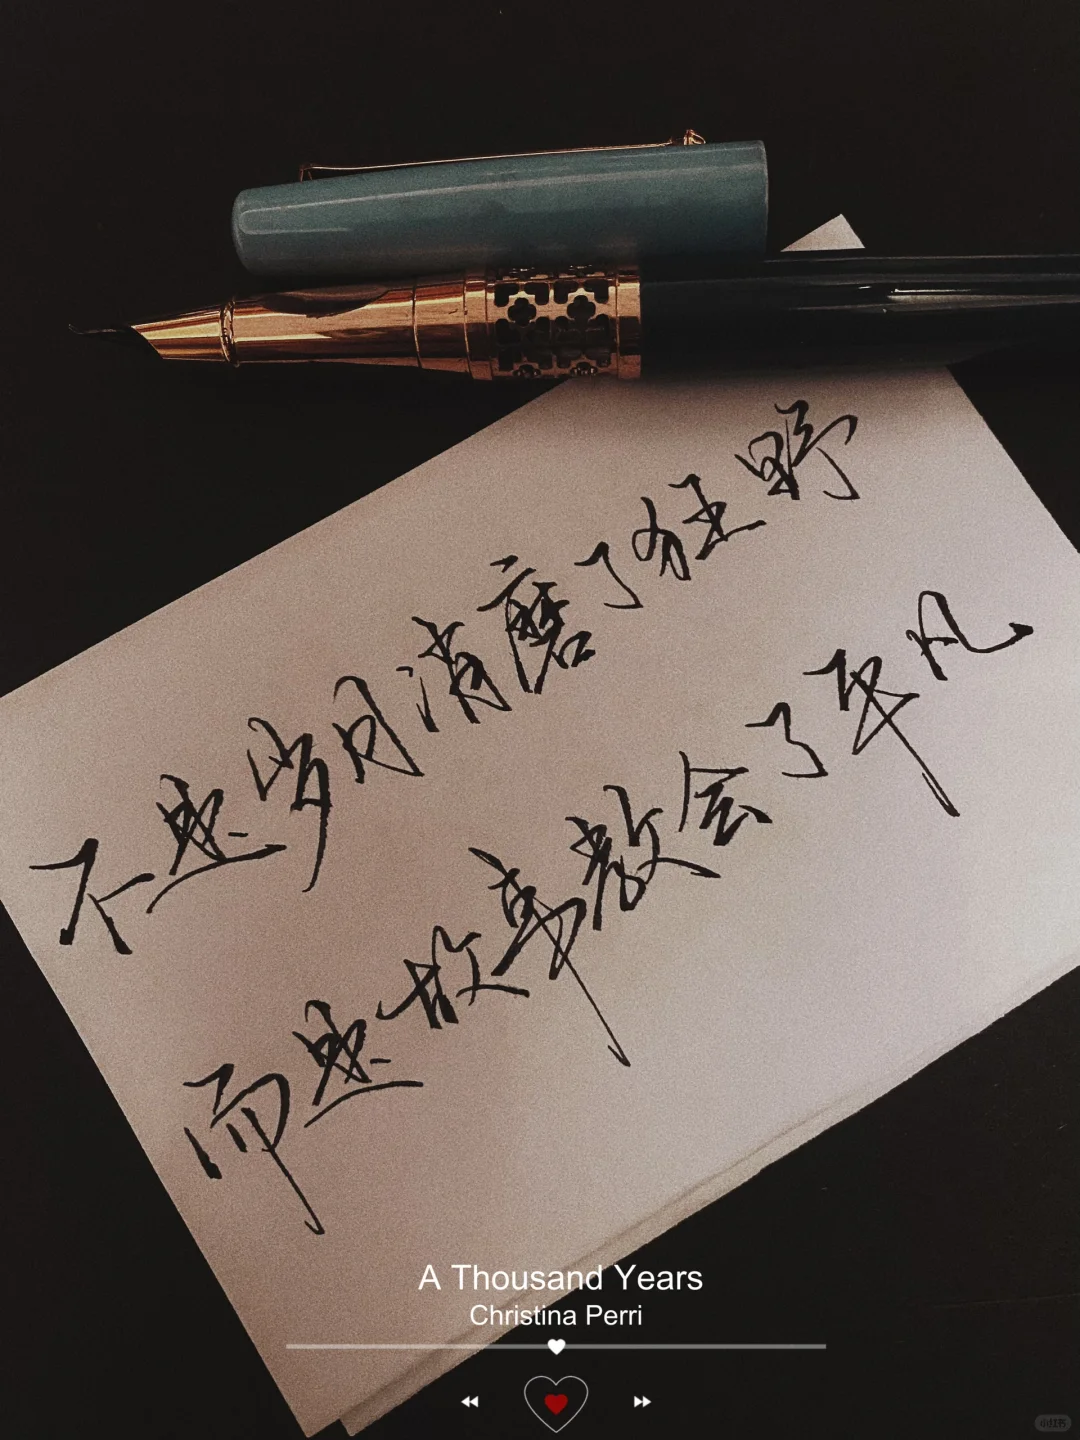 不是岁月消磨了狂野
而是故事教会了平凡
A Thousand Years
Christina Perri
小红书